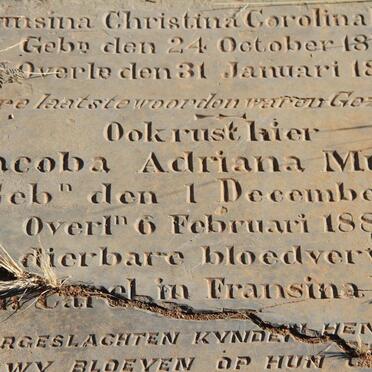 nsina Christina Carolina
Gebn den 24 October 18
Overle den 31 Januari 18
re laatste woorden waren Gez
Ook rust hier
acoba Adriana M
Gebn den 1 Decembe
Overln 6 Februari 188
dierbare bloedver
Carel in Fransina
RGESLACHTEN KVNDEN HEN
WY BLOEYEN OP HUN G